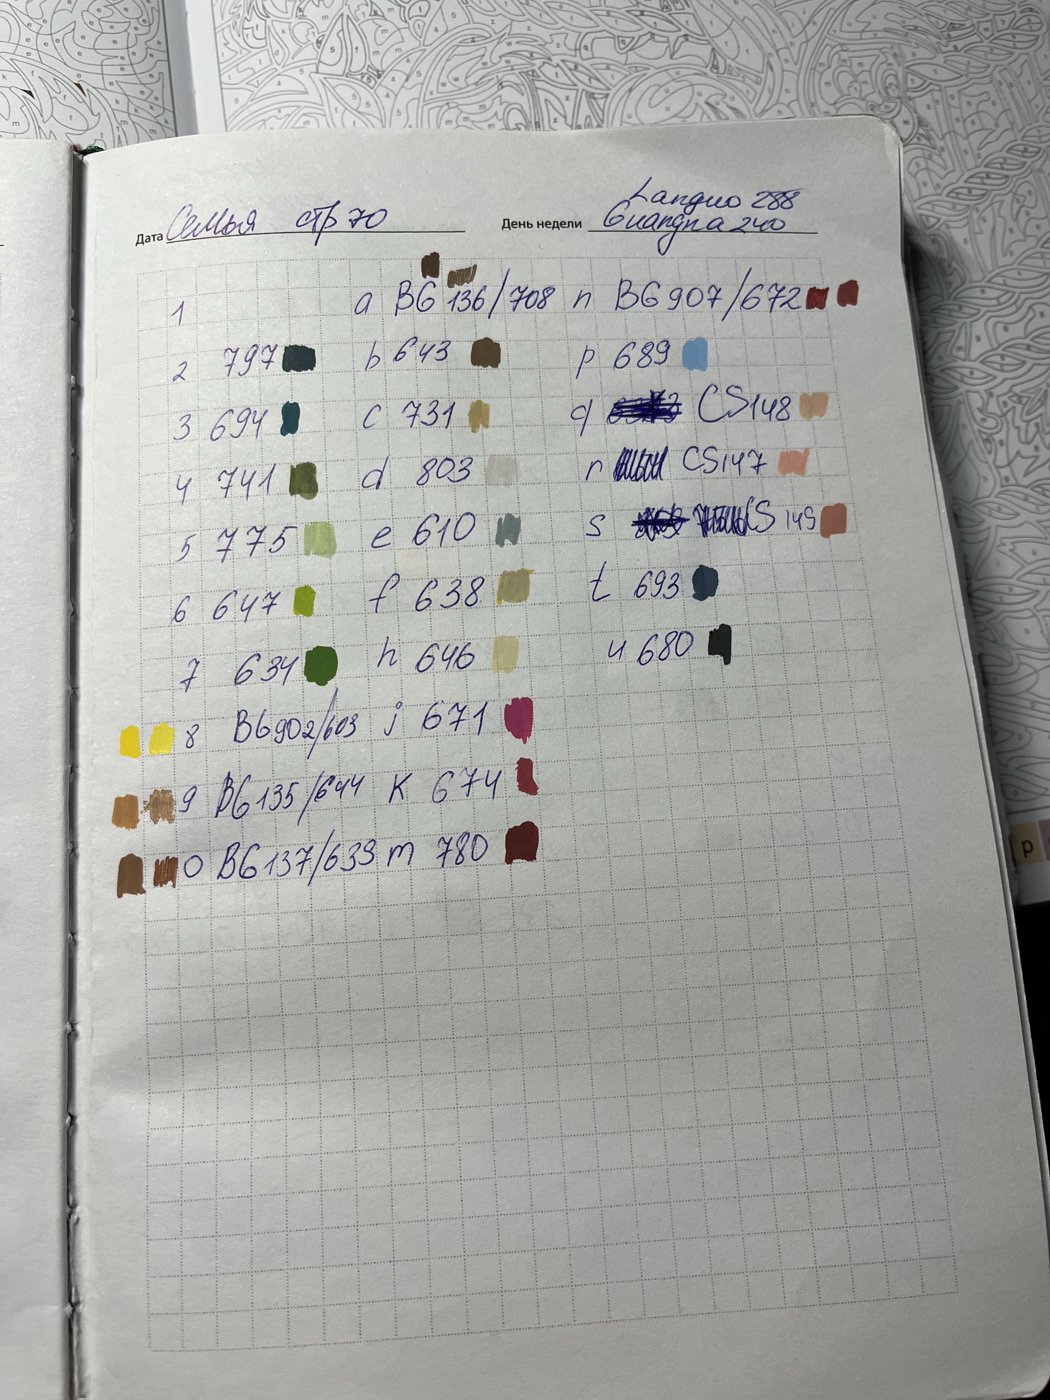 Ландио 288
Дата Семья стр 70 День недели Guangna 240
1 a BG 136/708 n BG 907/672
2 797 b 643 p 689
3 694 c 731 q CS148
4 741 d 803 r CS147
5 775 e 610 s CS 149
6 647 f 638 t 693
7 634 h 646 u 680
8 BG902/603 j 671
9 BG135/644 K 674
0 BG137/639 m 780
P